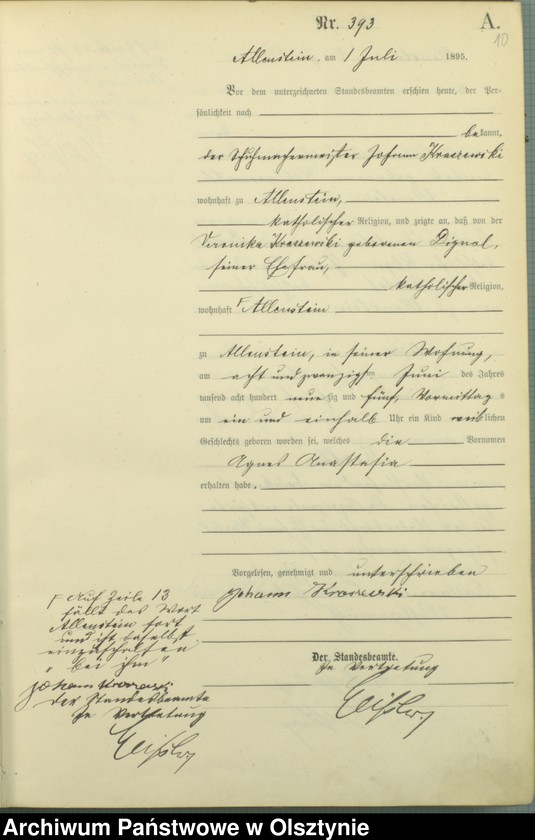 Nr. 393
A.
10
Allenstein, am 1 Juli 1895.
Vor dem unterzeichneten Standesbeamten erschien heute, der Per-
sönlichkeit nach
bekannt,
der Schuhmachermeister Johann Kraszewski
wohnhaft zu Allenstein,
katholischer Religion, und zeigte an, daß von der
Veronika Kraszewski geborenen Dignal,
seiner Ehefrau,
katholischer Religion,
wohnhaft Γ Allenstein
zu Allenstein, in seiner Wohnung,
am acht und zwanzigsten Juni des Jahres
tausend acht hundert neunzig und fünf, Vormittags
um ein und einhalb Uhr ein Kind weiblichen
Geschlechts geboren worden sei, welches die Vornamen
Agnes Anastasia
erhalten habe.
Vorgelesen, genehmigt und unterschrieben
Johann Kraszewski
Γ Auf Zeile 13
fällt das Wort
Allenstein fort
und ist daselbst
einzuschalten
„bei ihm"
Johann
Der Standesbeamte
In Vertretung
Der Standesbeamte.
In Vertretung
Archiwum Państwowe w Olsztynie